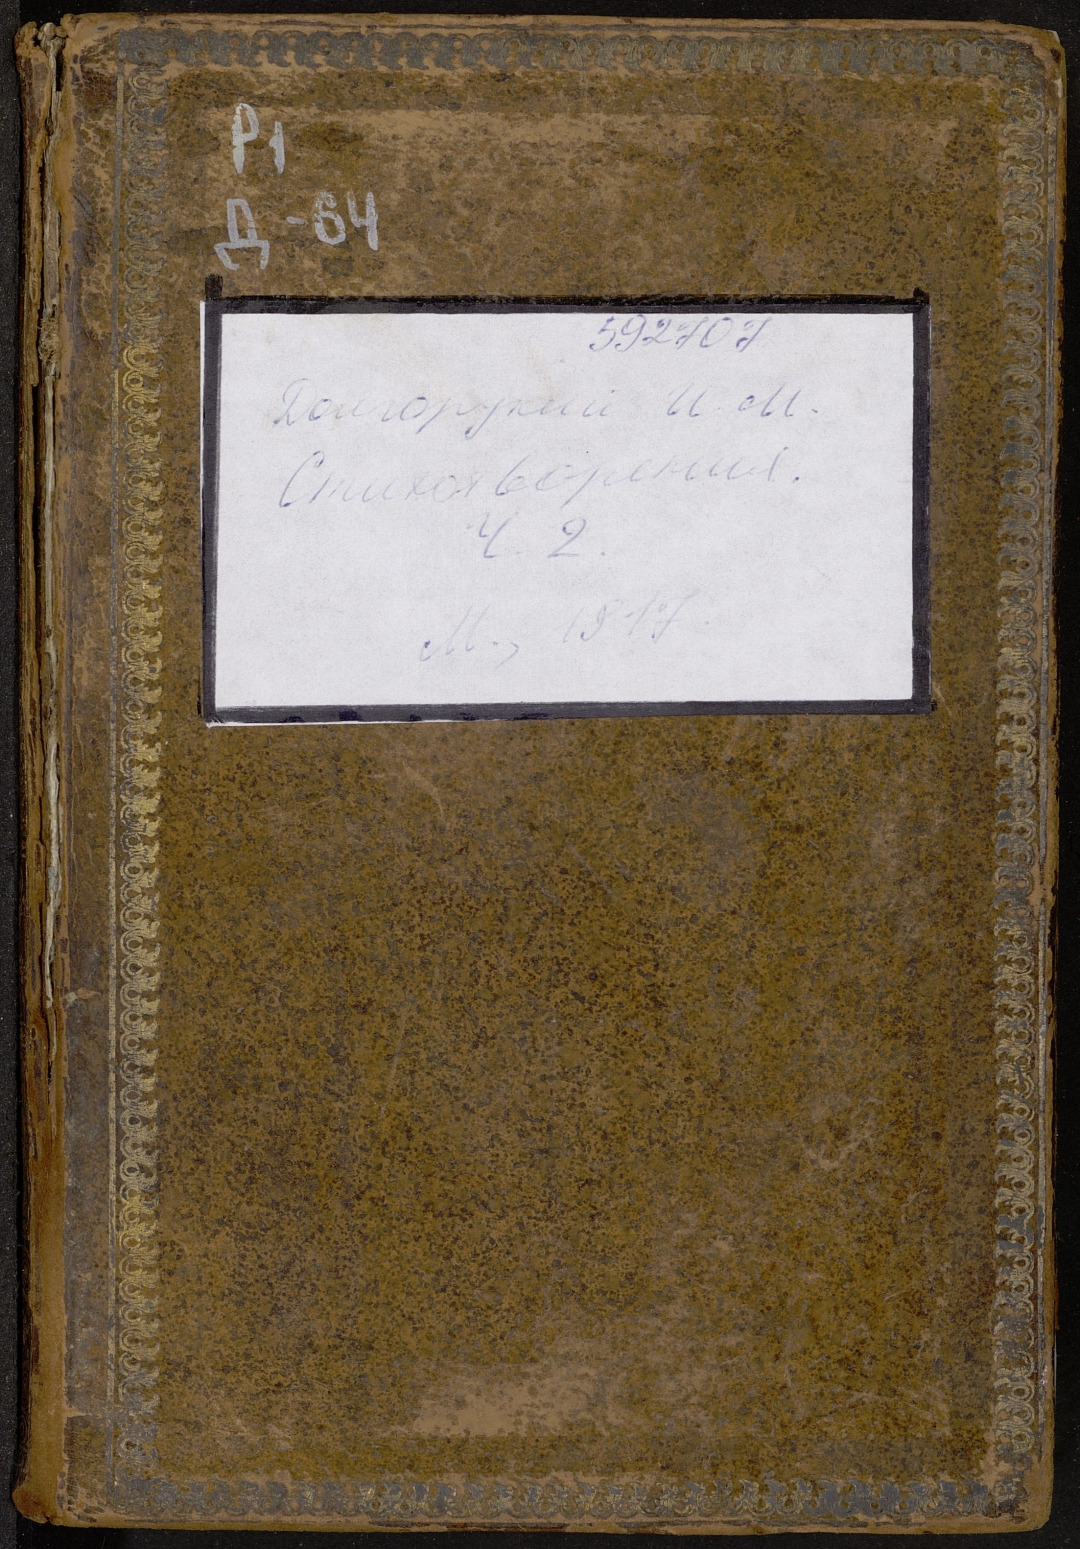 Р1
Д-64
592707
Долгорукий И. М.
Стихотворения.
Ч. 2.
М., 1817.